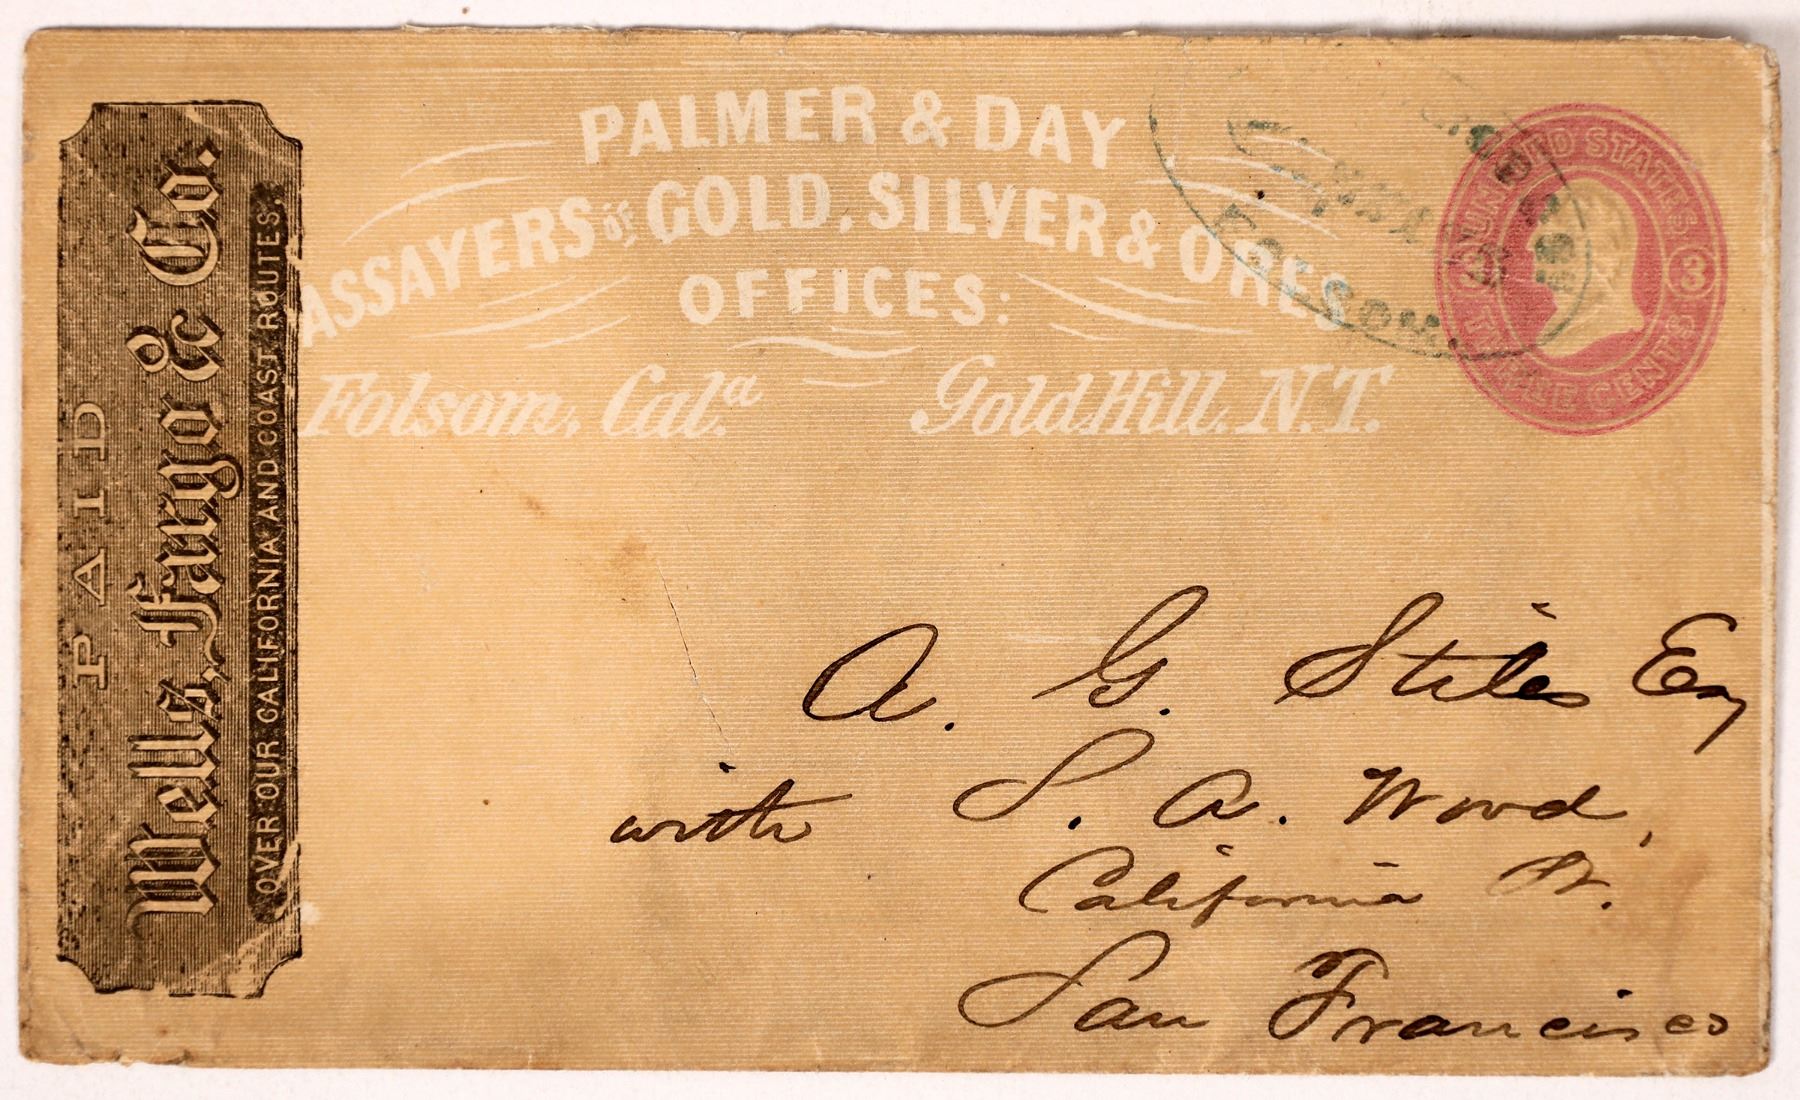 PAID
Wells, Fargo & Co.
OVER OUR CALIFORNIA AND COAST ROUTES.
PALMER & DAY
ASSAYERS OF GOLD, SILVER & ORES
OFFICES:
Folsom, Calª. Gold Hill, N.T.
FOLSOM.
UNITED STATES
3 3
THREE CENTS
A. G. Stiles Esq
with S. A. Wood,
California St.
San Francisco